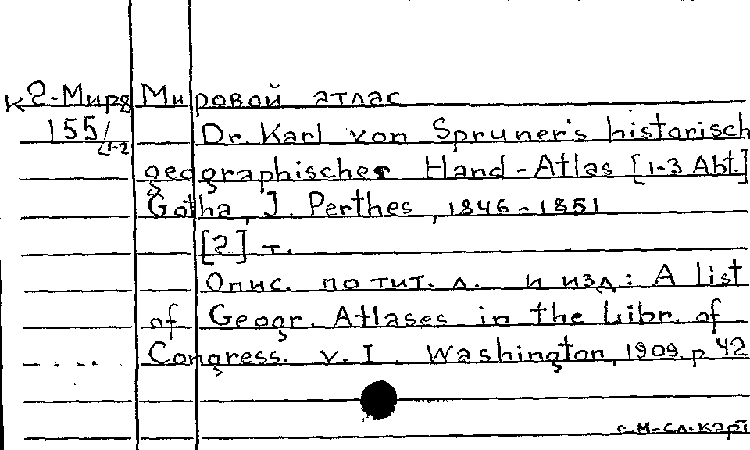 К2-Миря Мировой атлас
155/1-2 Dr. Karl von Spruner's historisch
geographischer Hand-Atlas [1-3 Abt.]
Gotha, J. Perthes, 1846-1851
[2] т.
Опис. по тит. л. и изд: A list
of Geogr. Atlases in the Libr. of
Congress. v. I. Washington, 1909. p 42